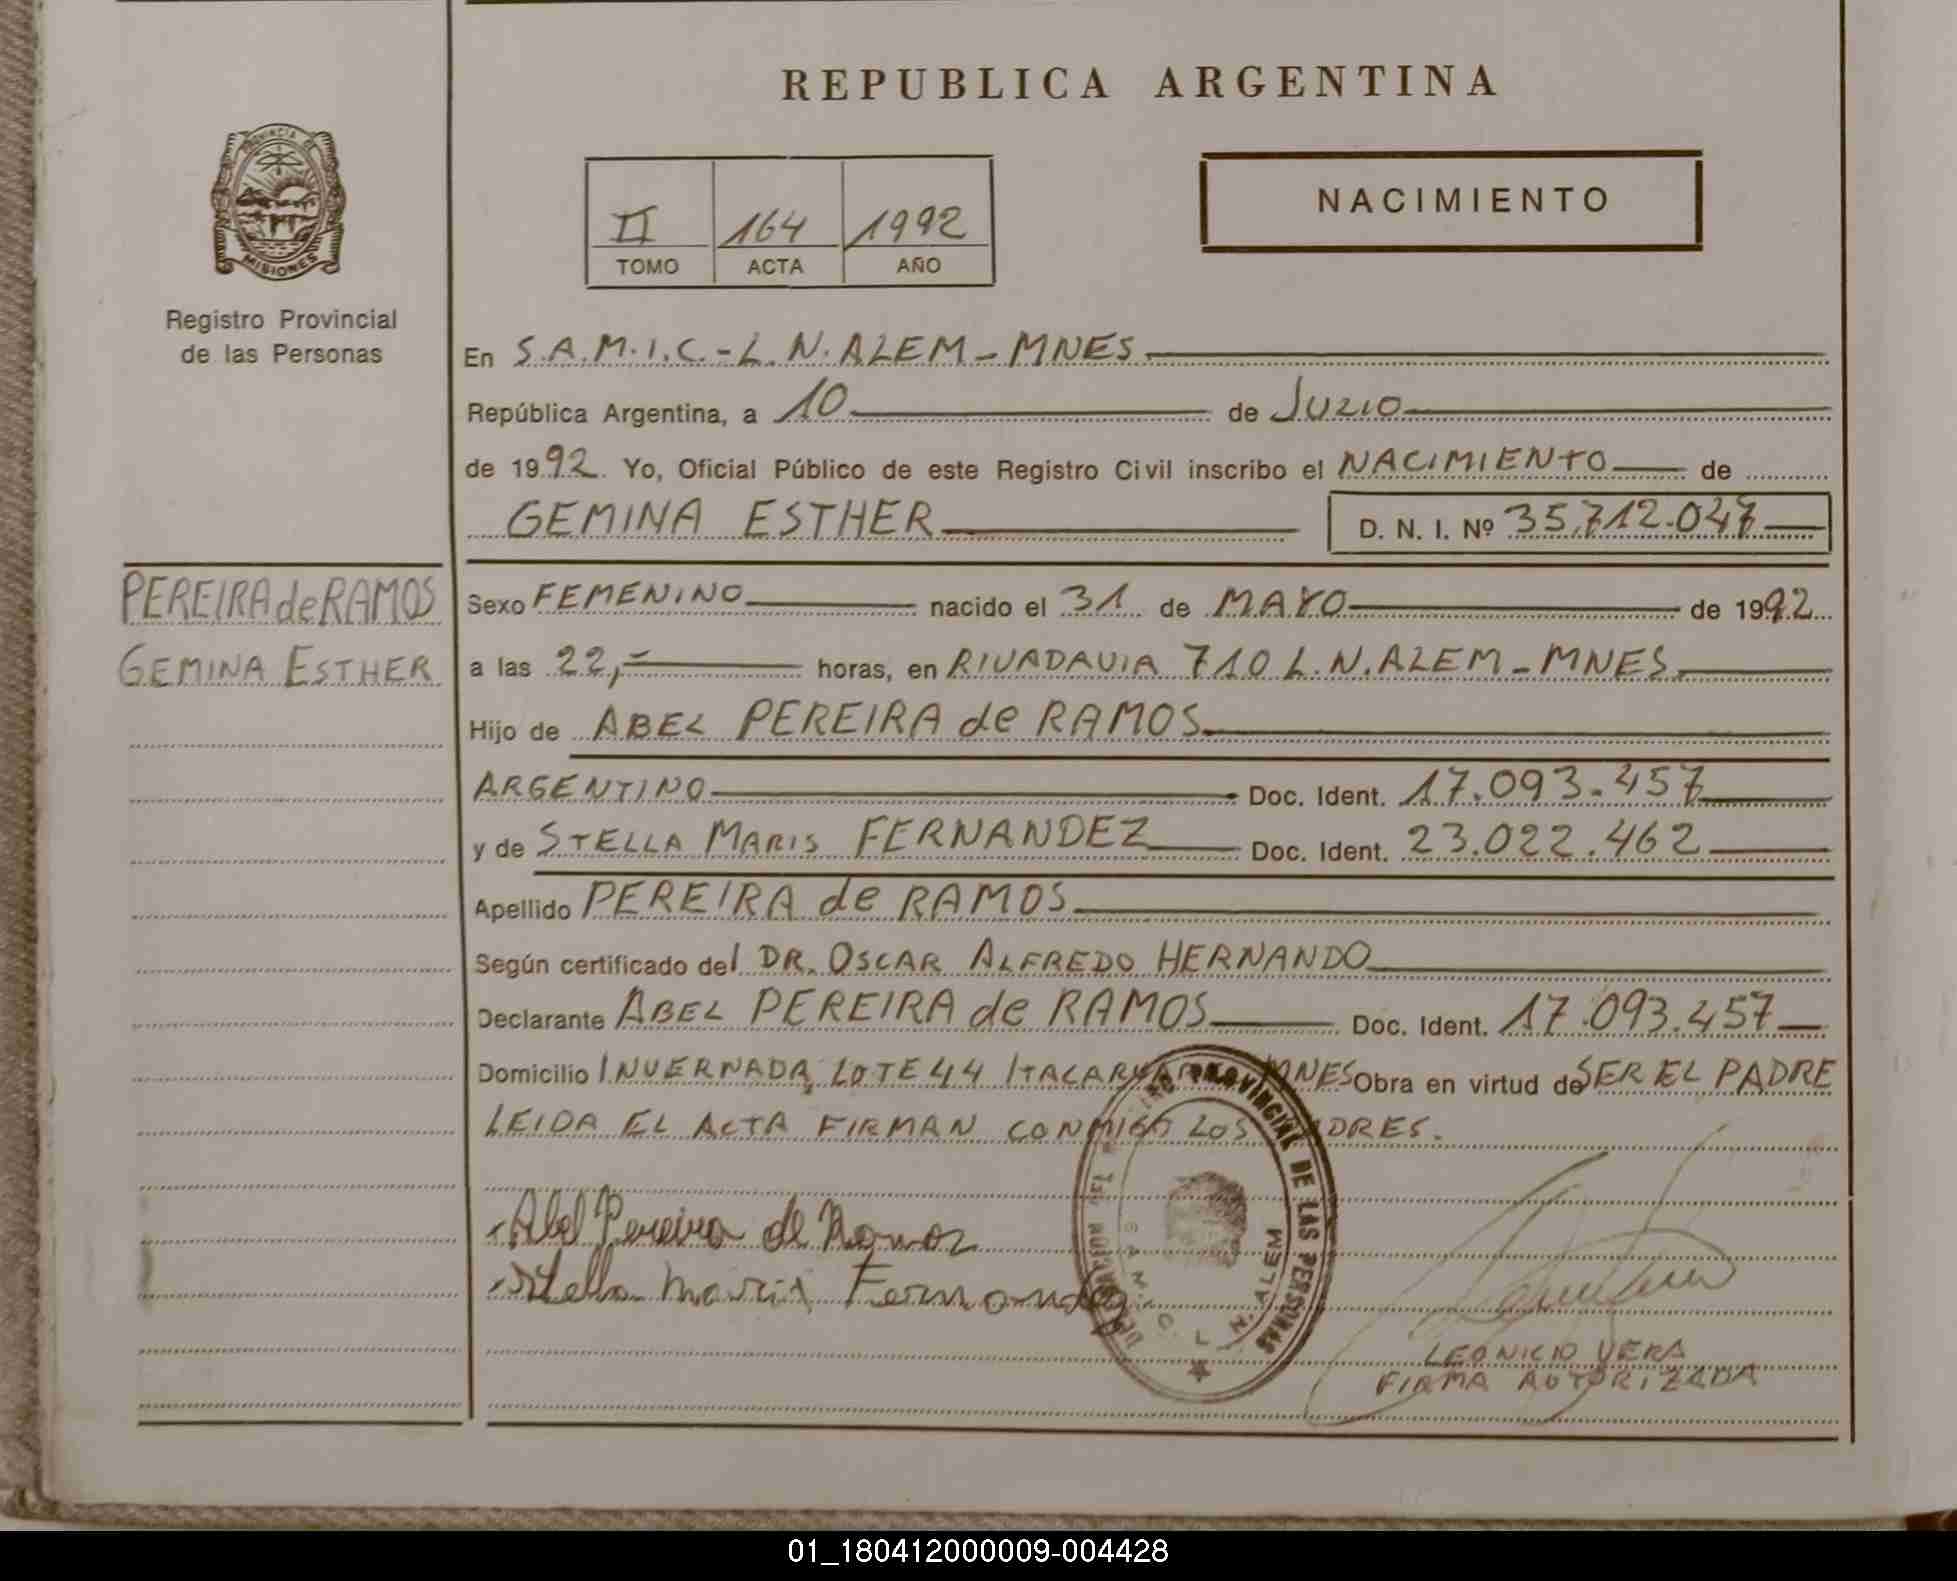 REPUBLICA ARGENTINA
PROVINCIA
MISIONES
Registro Provincial
de las Personas
II 164 1992
TOMO ACTA AÑO
NACIMIENTO
En S.A.M.I.C.-L.N.ALEM-MNES
República Argentina, a 10 de JULIO
de 1992. Yo, Oficial Público de este Registro Civil inscribo el NACIMIENTO de
GEMINA ESTHER D. N. I. Nº 35.712.047
PEREIRA de RAMOS
GEMINA ESTHER
Sexo FEMENINO nacido el 31 de MAYO de 1992
a las 22,- horas, en RIVADAVIA 710 L.N.ALEM-MNES.
Hijo de ABEL PEREIRA de RAMOS
ARGENTINO Doc. Ident. 17.093.457
y de STELLA MARIS FERNANDEZ Doc. Ident. 23.022.462
Apellido PEREIRA de RAMOS
Según certificado del DR. OSCAR ALFREDO HERNANDO
Declarante ABEL PEREIRA de RAMOS Doc. Ident. 17.093.457
Domicilio INVERNADA, LOTE 44 MNES Obra en virtud de SER EL PADRE
LEIDA EL ACTA FIRMAN CONMIGO LOS PADRES.
Abel Pereira de Ramos
Stella Maris Fernandez
PROVINCIAL DE LAS PERSONAS
S.A.M.I.C. L. N. ALEM
LEONICIO VERA
FIRMA AUTORIZADA
01_180412000009-004428